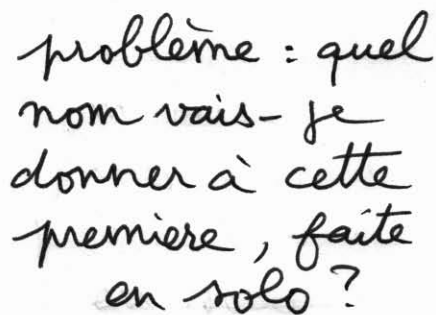 problème : quel
nom vais-je
donner à cette
premiere, faite
en solo ?